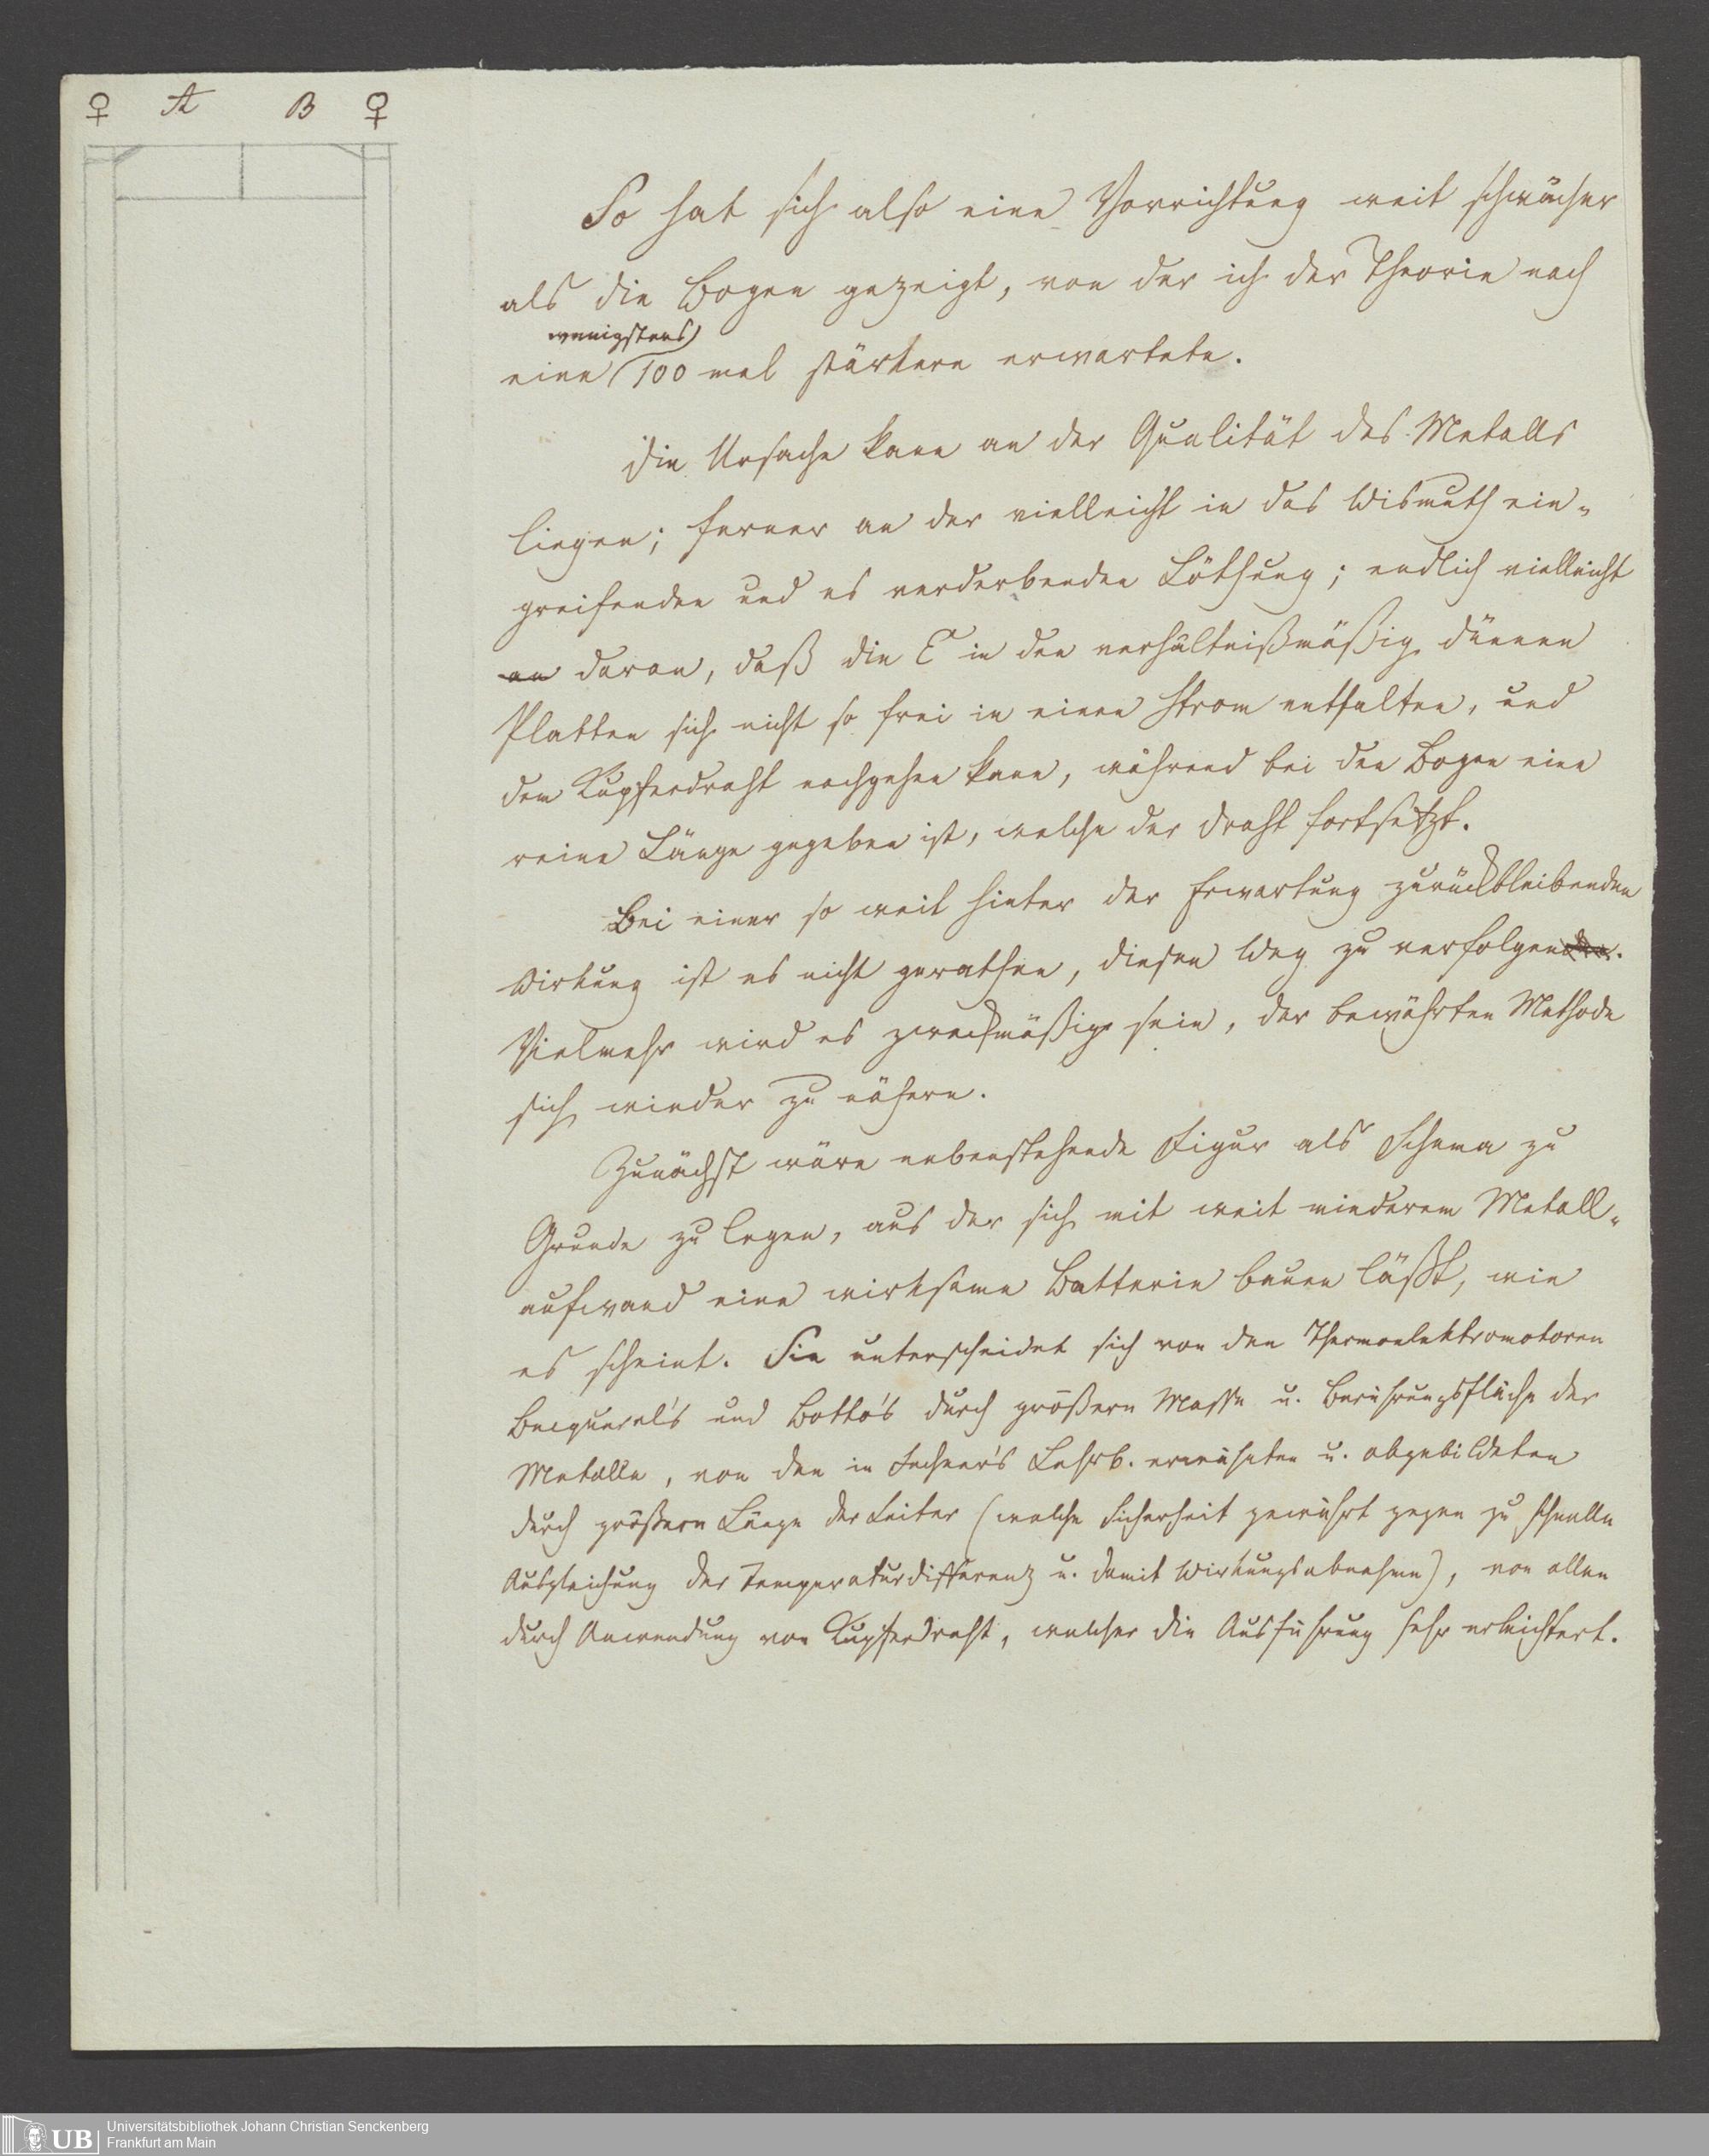 ♀ A B ♀
So hat sich also eine Vorrichtung weit schwächer
als die Bogen gezeigt, von der ich der Theorie nach
wenigstens
eine 100 mal stärkere erwartete.
Die Ursache kann an der Qualität des Metalls
liegen; ferner an der vielleicht in das Wismuth ein-
greifenden und es verderbenden Löthung; endlich vielleicht
an daran, daß die E in den verhältnißmäßig dünnen
Platten sich nicht so frei in einen Strom entfalten, und
dem Kupferdraht nachgehen kann, während bei den Bogen eine
reine Länge gegeben ist, welche der Draht fortsetzt.
Bei einer so weit hinter der Erwartung zurückbleibenden
Wirkung ist es nicht gerathen, diesen Weg zu verfolgen.
Vielmehr wird es zweckmäßig sein, der bewährten Methode
sich wieder zu nähern.
Zunächst wäre nebenstehende Figur als Schema zu
Grunde zu legen, aus der sich mit weit minderem Metall-
aufwand eine wirksame Batterie bauen läßt, wie
es scheint. Sie unterscheidet sich von den Thermoelektromotoren
Becquerel's und Botto's durch größere Masse u. Berührungsfläche der
Metalle, von den in Fechner's Lehrb. erwähnten u. abgebildeten
durch größere Länge der Leiter (welche Sicherheit gewährt gegen zu schnelle
Ausgleichung der Temperaturdifferenz u. damit Wirkungsabnahme), von allen
durch Anwendung von Kupferdraht, welcher die Ausführung sehr erleichtert.
UB
Universitätsbibliothek Johann Christian Senckenberg
Frankfurt am Main